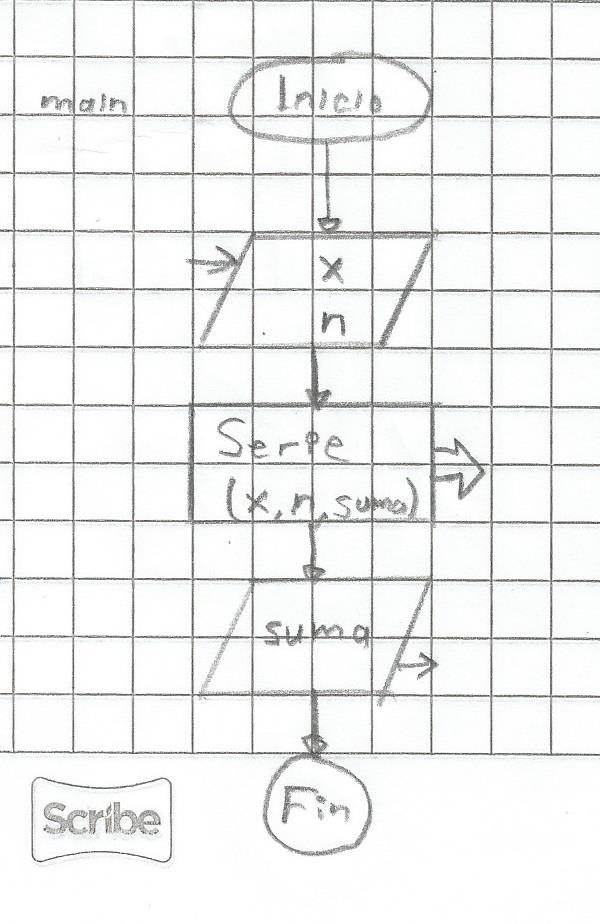 main
Inicio
x
n
Serie
(x, n, suma)
suma
Fin
Scribe